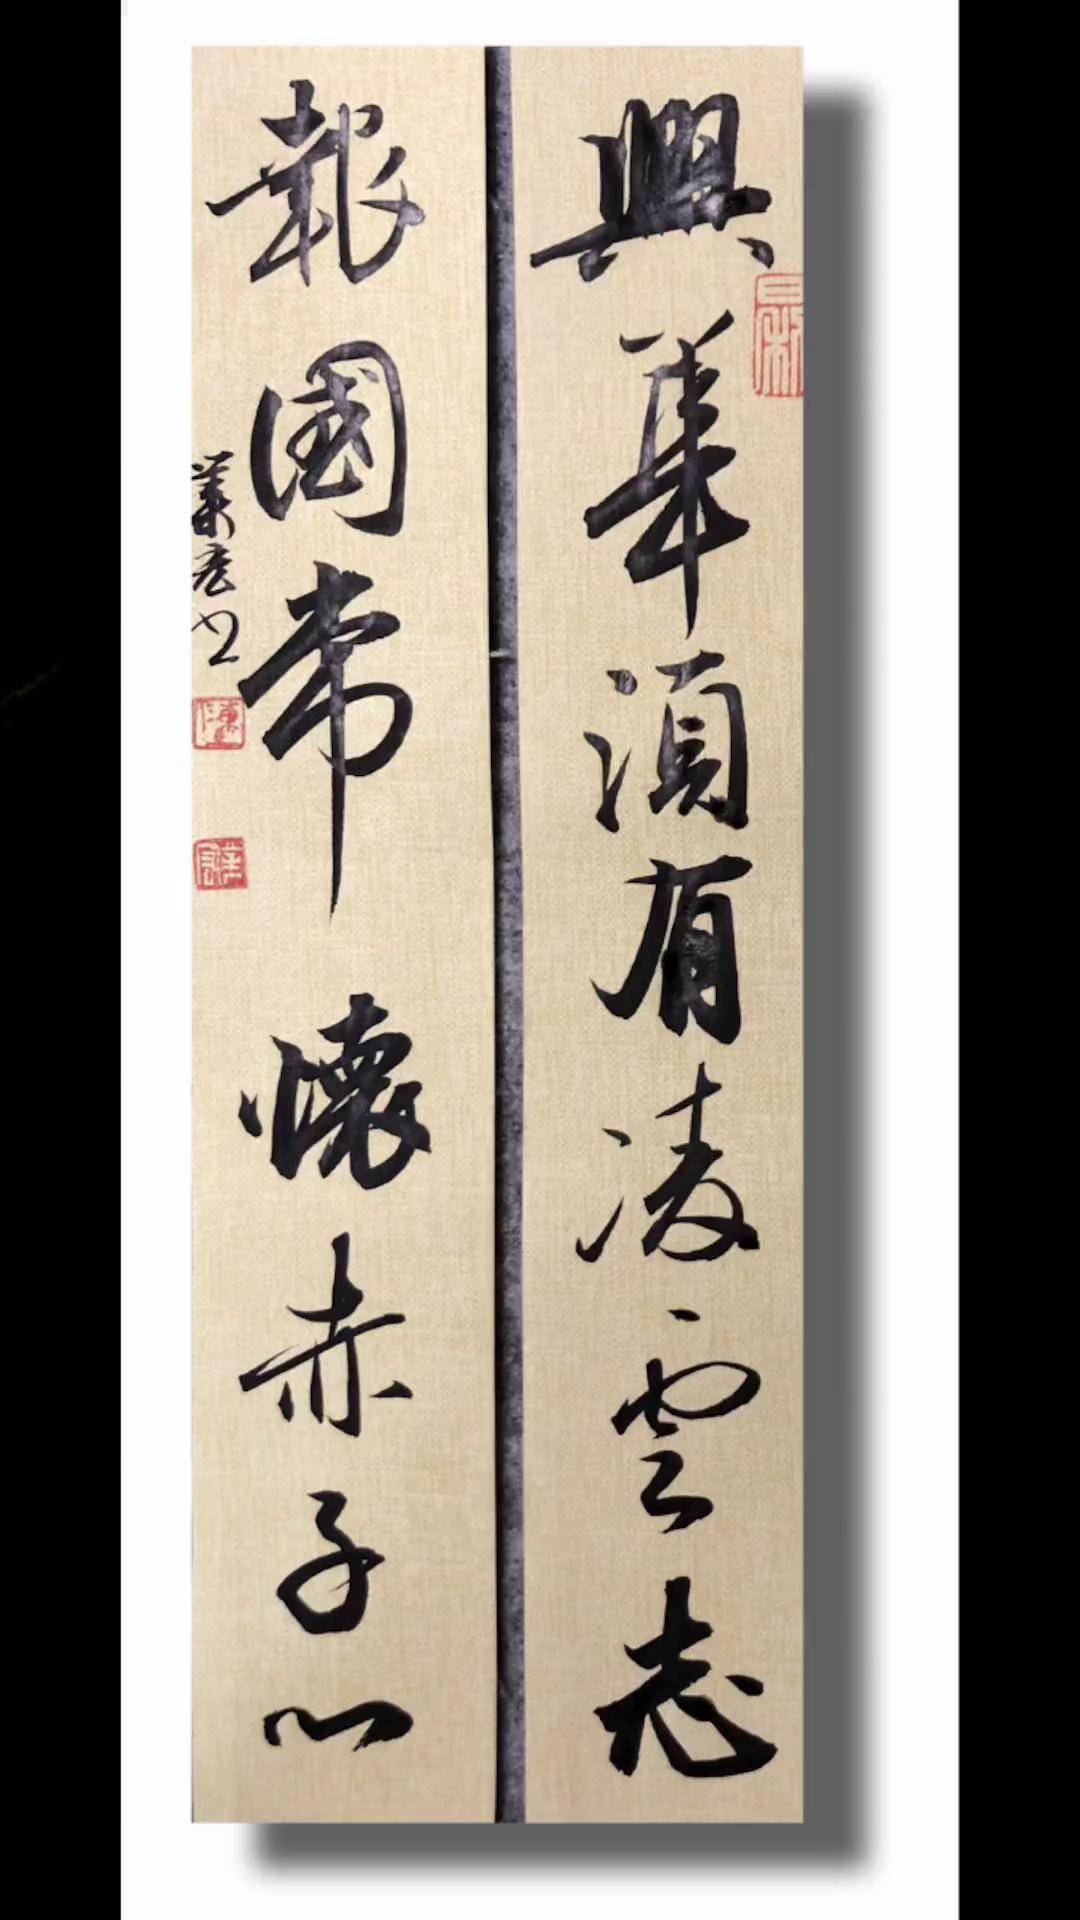 興華須有凌雲志
報國常懷赤子心